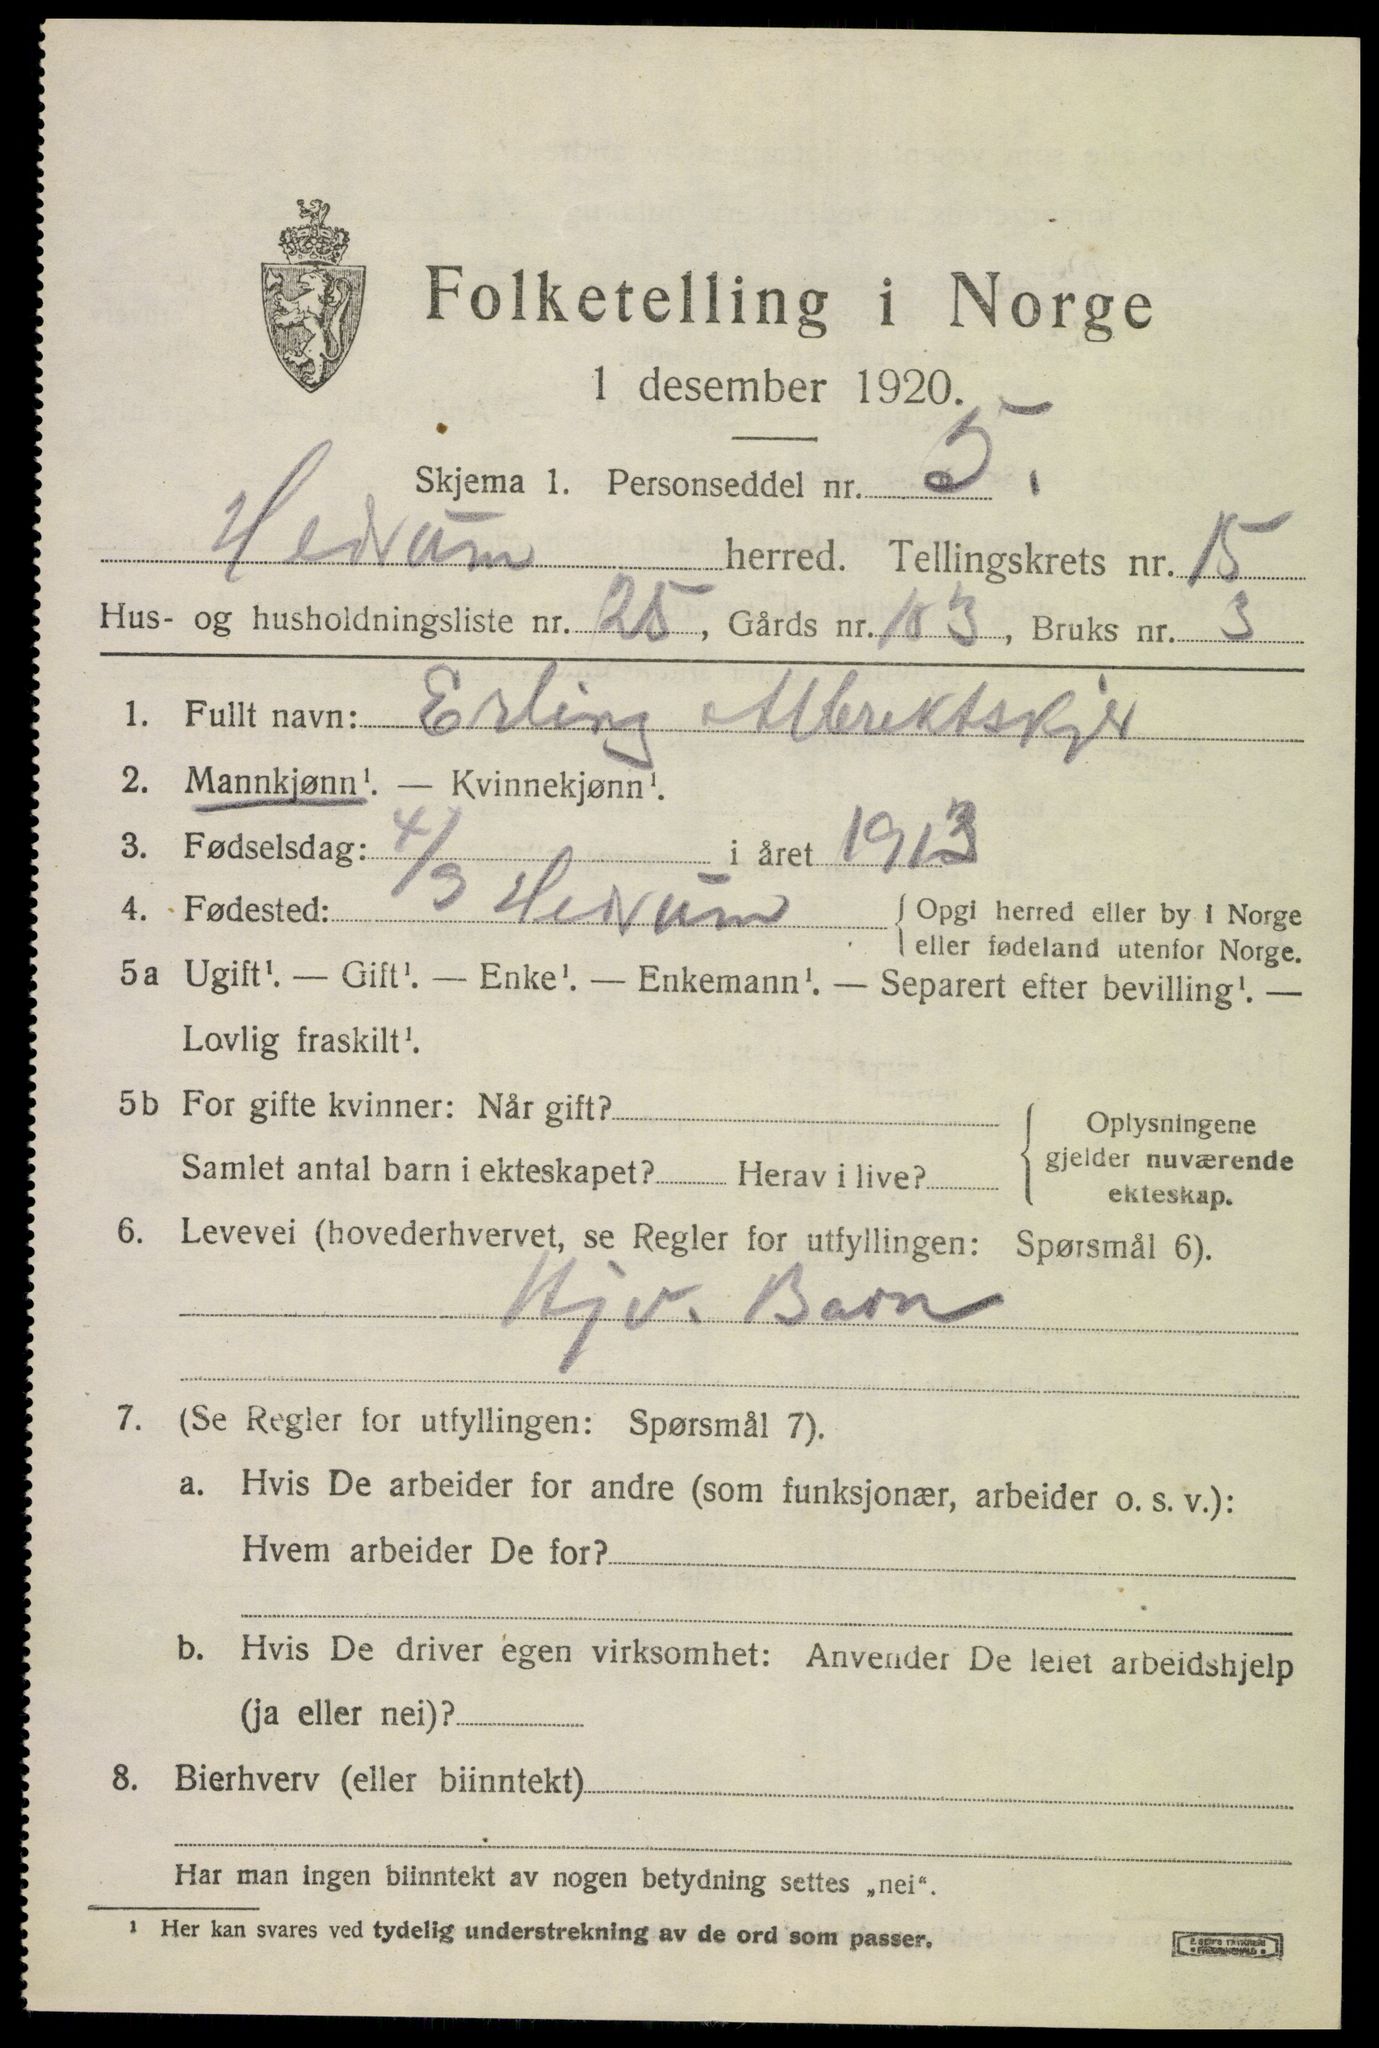 Folketelling i Norge
1 desember 1920.
Skjema 1. Personseddel nr. 5.
Hedrum herred. Tellingskrets nr. 15
Hus- og husholdningsliste nr. 25, Gårds nr. 103, Bruks nr. 3
1. Fullt navn: Erling Albrektskjer
2. Mannkjønn¹. — Kvinnekjønn¹.
3. Fødselsdag: 4/9 i året 1913
4. Fødested: Hedrum { Opgi herred eller by i Norge
eller fødeland utenfor Norge.
5a Ugift¹. — Gift¹. — Enke¹. — Enkemann¹. — Separert efter bevilling¹. —
Lovlig fraskilt¹.
5b For gifte kvinner: Når gift?
Samlet antal barn i ekteskapet? Herav i live?
{ Oplysningene
gjelder nuværende
ekteskap.
6. Levevei (hovederhvervet, se Regler for utfyllingen: Spørsmål 6).
Hjv. Barn
7. (Se Regler for utfyllingen: Spørsmål 7).
a. Hvis De arbeider for andre (som funksjonær, arbeider o. s. v.):
Hvem arbeider De for?
b. Hvis De driver egen virksomhet: Anvender De leiet arbeidshjelp
(ja eller nei)?
8. Bierhverv (eller biinntekt)
Har man ingen biinntekt av nogen betydning settes „nei“.
¹ Her kan svares ved tydelig understrekning av de ord som passer.